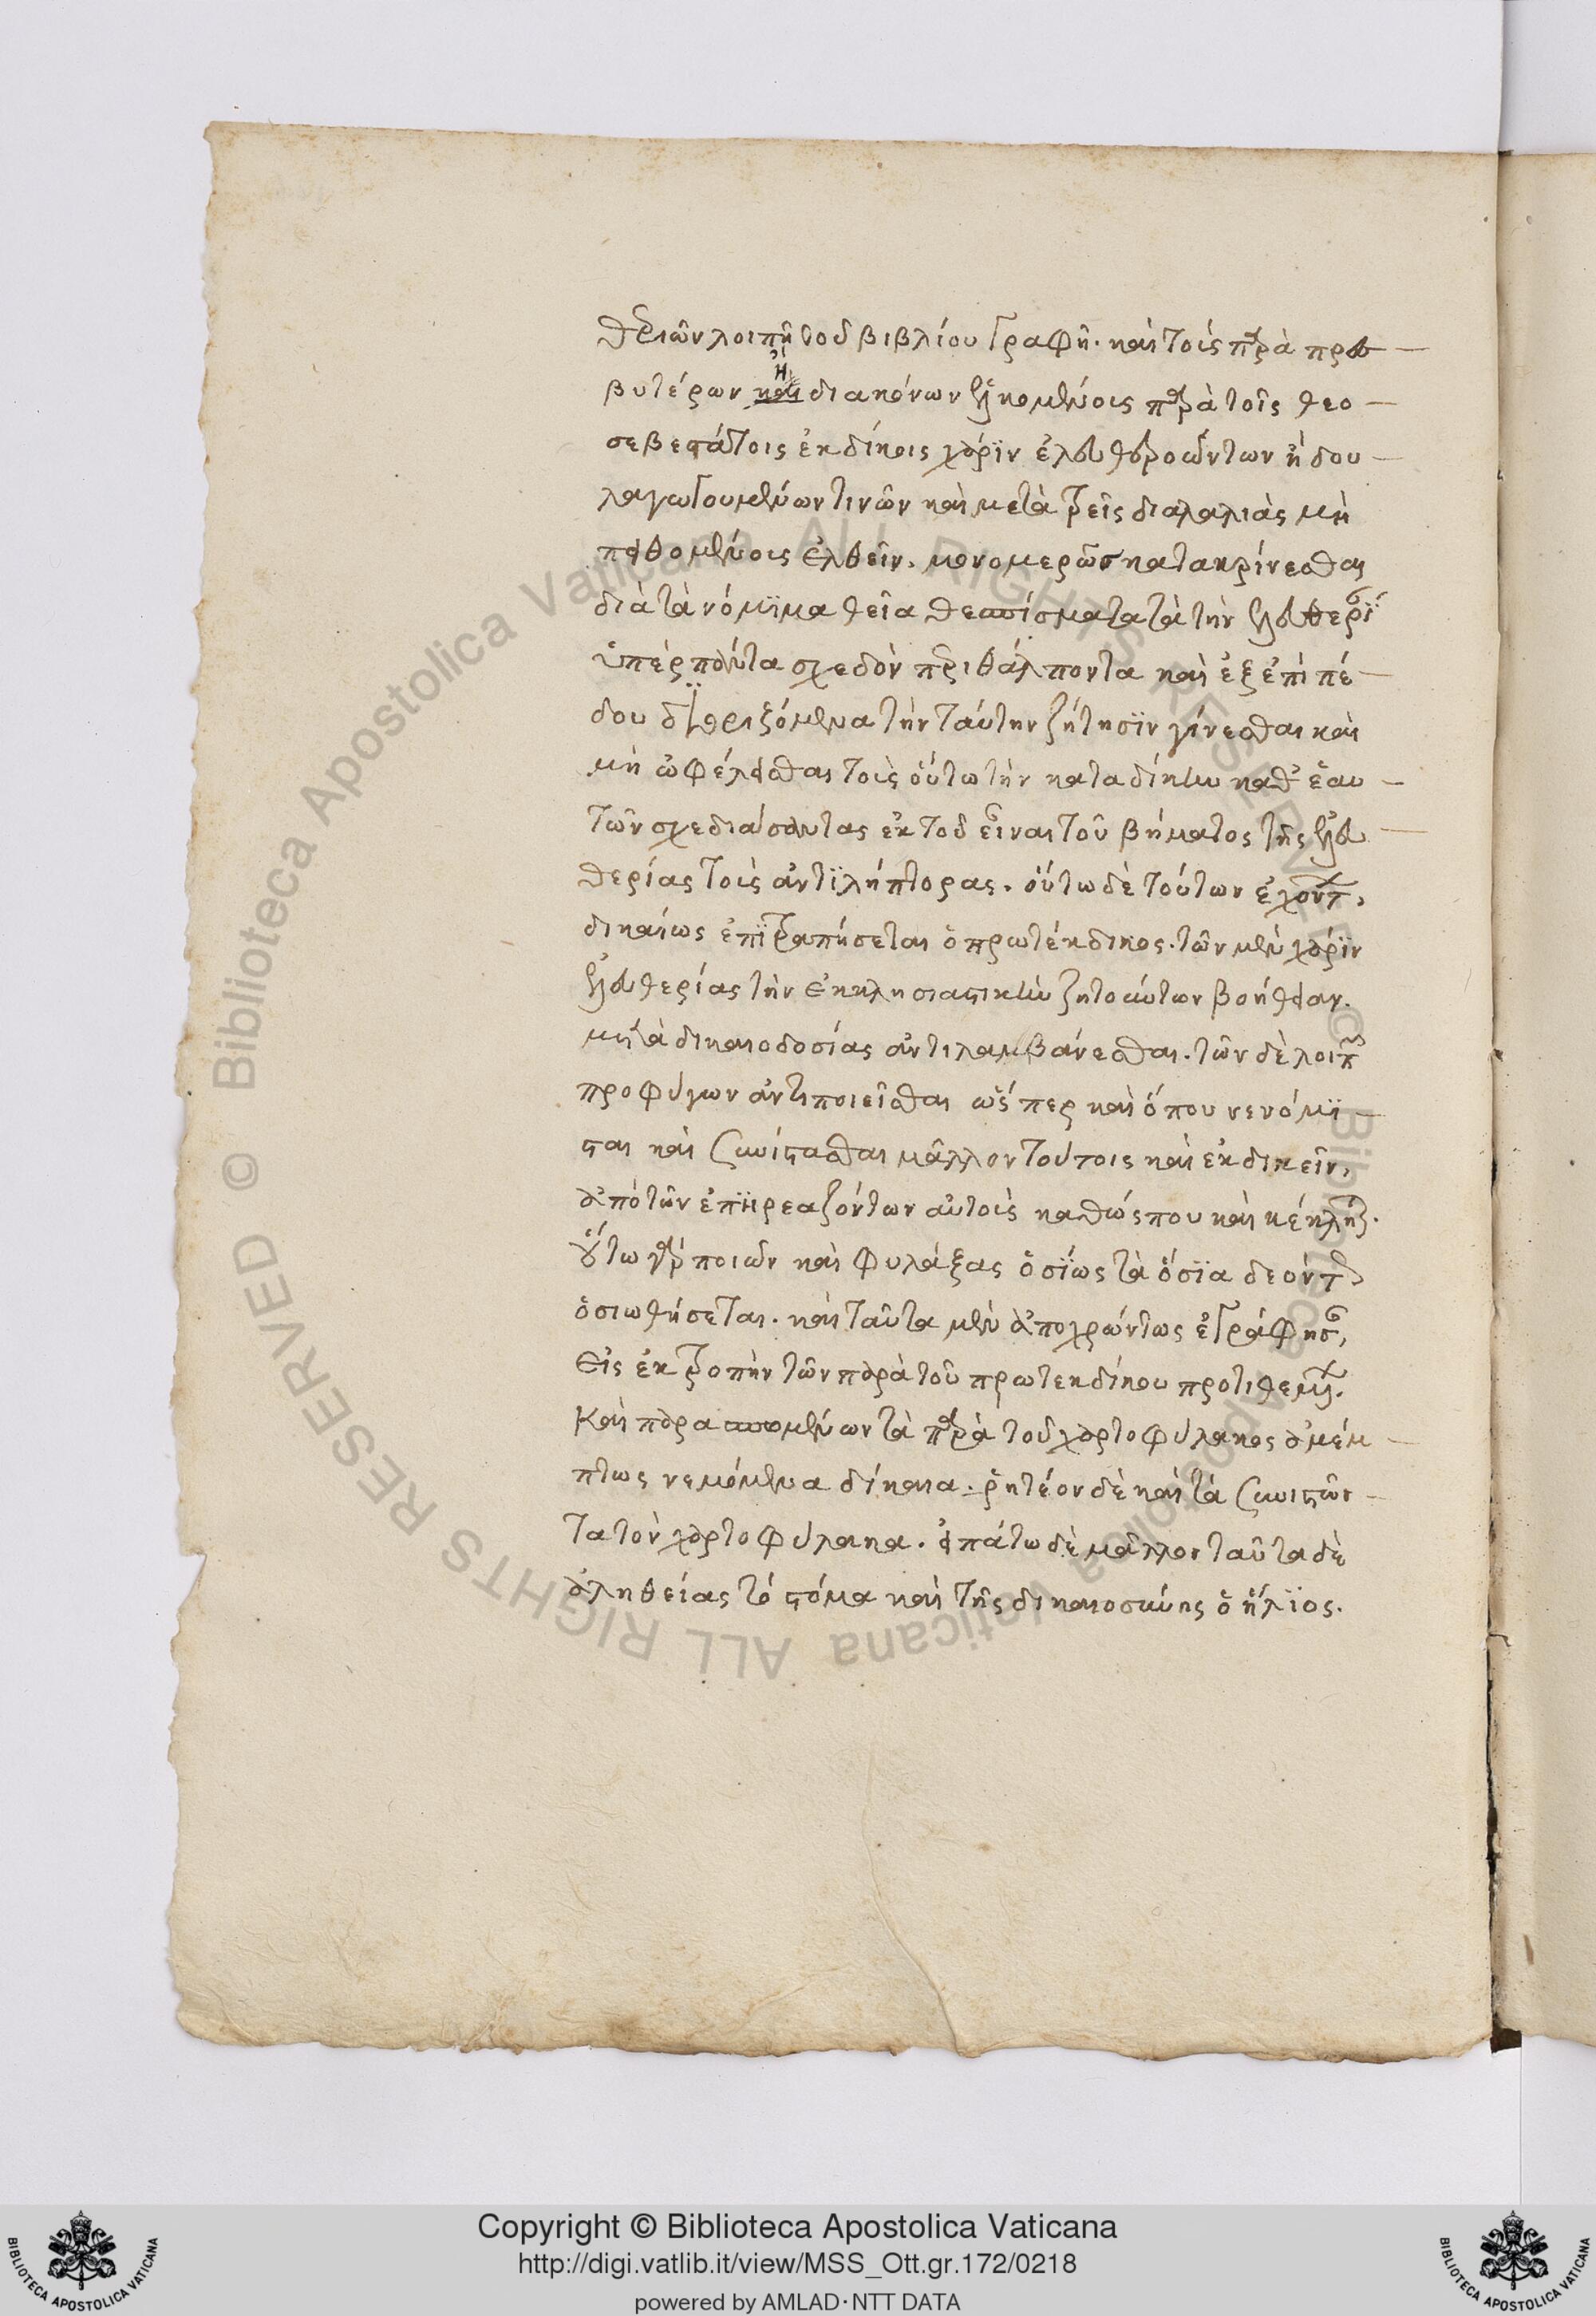 λοιπῇ τοῦ βιβλίου γραφῇ. καὶ τοὺς παρὰ πρεσ
βυτέρων καὶ ἢ διακόνων ἑλκομένοις παρὰ τοῖς θεο
σεβεστάτοις ἐκδίκοις χάριν ἐλευθεροώντων ἢ δου
λαγωγουμένων τινῶν καὶ μετὰ τρεῖς διαλαλιὰς μὴ
πειθομένοις ἐλθεῖν. μονομερῶς κατακρίνεσθαι
διὰ τὰ νόμϊμα θεῖα θεσπίσματα τὰ τὴν ἐλευθερΐ
ὑπὲρ πάντα σχεδὸν περιθάλποντα καὶ ἐξ ἐπιπέ
δου τὴν ταύτην ζήτησϊν γίνεσθαι καὶ
μὴ ὠφελεῖσθαι τοὺς οὕτω τὴν καταδίκην καθ' ἑαυ
τῶν σχεδιάσαντας ἐκ τοῦ εἶναι τοῦ βήματος τῆς ἐλευ
θερίας τοὺς ἀντϊλήπτορας. οὕτω δὲ τούτων ἐχόντων,
δικαίως ἐπϊτραπήσεται ὁ πρωτέκδικος. τῶν μὲν χάρϊν
ἐλευθερίας τὴν ἐκκλησιαστικὴν ζητούντων βοήθειαν.
μετὰ δικαιοδοσίας ἀντιλαμβάνεσθαι. τῶν δὲ λοιπῶν
προσφύγων ἀντιποιεῖσθαι ὥσπερ καὶ ὅπου νενόμϊ
σται καὶ συνίστασθαι μᾶλλον τούτοις καὶ ἐκδικεῖν,
ἀπὸ τῶν ἐπηρεαζόντων αὐτοὺς καθώς που καὶ κέκληται.
οὕτω γὰρ ποιῶν καὶ φυλάξας ὁσΐως τὰ ὅσϊα δεόντως
ὁσιωθήσεται. καὶ ταῦτα μὲν ἀποχρώντως ἐγράφησαν,
εἰς ἐκτροπὴν τῶν παρὰ τοῦ πρωτεκδίκου προτιθεμένων.
Καὶ παρασπομένων τὰ παρὰ τοῦ χαρτοφύλακος ἀμέμ
πτως νεμόμενα δίκαια. ῥητέον δὲ καὶ τὰ συνιστῶν
τα τὸν χαρτοφύλακα. εἰπάτω δὲ μᾶλλον ταῦτα δὲ
ἀληθείας τὸ στόμα καὶ τῆς δικαιοσύνης ὁ ἥλϊος.
Copyright © Biblioteca Apostolica Vaticana
http://digi.vatlib.it/view/MSS_Ott.gr.172/0218
powered by AMLAD·NTT DATA
BIBLIOTECA APOSTOLICA VATICANA
BIBLIOTECA APOSTOLICA VATICANA
© Biblioteca Apostolica Vaticana ALL RIGHTS RESERVED
© Biblioteca Apostolica Vaticana ALL RIGHTS RESERVED